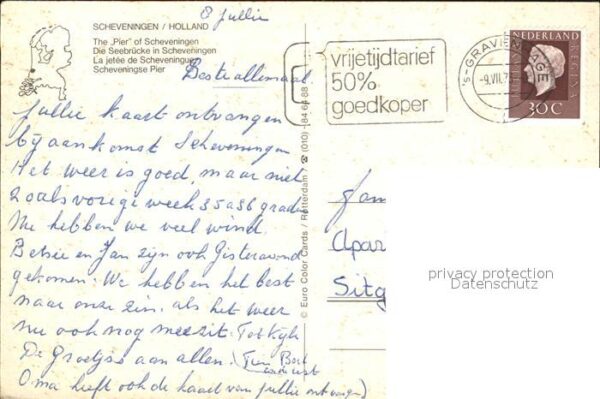 8 jullie
SCHEVENINGEN / HOLLAND
The „Pier" of Scheveningen
Die Seebrücke in Scheveningen
La jetée de Scheveningue
Scheveningse Pier
Beste allemaal
jullie kaart ontvangen
bij aankomst Scheveningen
Het weer is goed, maar niet
zoals vorige week 35 a 36 graden
We hebben we veel wind
Betsie en Jan zijn ook gisteravond
gekomen. We hebben het best
naar onze zin. als het weer
nu ook nog meezit. Tot kijk
De Groetjes aan allen. (
Oma heeft ook de kaart van jullie ontvangen)
© Euro Color Cards / Rotterdam / ☎ (010) - 84 64 88
vrijetijdtarief
50%
goedkoper
's-GRAVENHAGE
-9.VII.7
NEDERLAND
30 C
fam
Apar
Sitg
privacy protection
Datenschutz